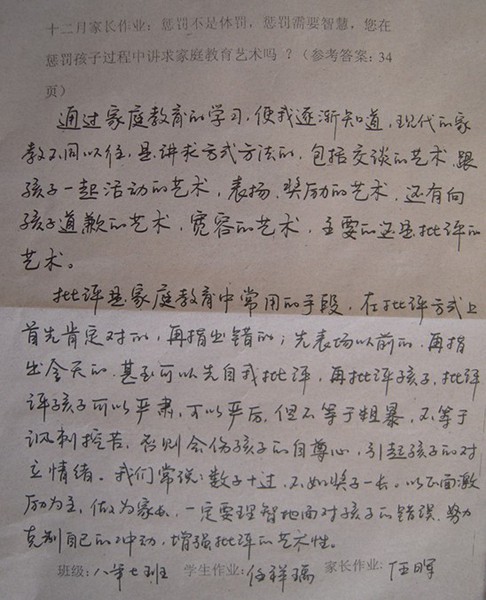 十二月家长作业：惩罚不是体罚，惩罚需要智慧，您在
惩罚孩子过程中讲求家庭教育艺术吗？（参考答案：34
页）
通过家庭教育的学习，使我逐渐知道，现代的家
教不同以往，是讲求方式方法的，包括交谈的艺术，跟
孩子一起活动的艺术，表扬、奖励的艺术，还有向
孩子道歉的艺术，宽容的艺术，主要的还是批评的
艺术。
批评是家庭教育中常用的手段，在批评方式上
首先肯定对的，再指出错的；先表扬以前的，再指
出今天的，甚至可以先自我批评，再批评孩子，批评
评孩子可以严肃，可以严厉，但不等于粗暴，不等于
讽刺挖苦，否则会伤孩子的自尊心，引起孩子的对
立情绪。我们常说：数子十过，不如奖子一长。以正面激
励为主，做为家长，一定要理智地面对孩子的错误，努力
克制自己的冲动，增强批评的艺术性。
班级：八年七班 学生作业：任祥瑞 家长作业：任晖